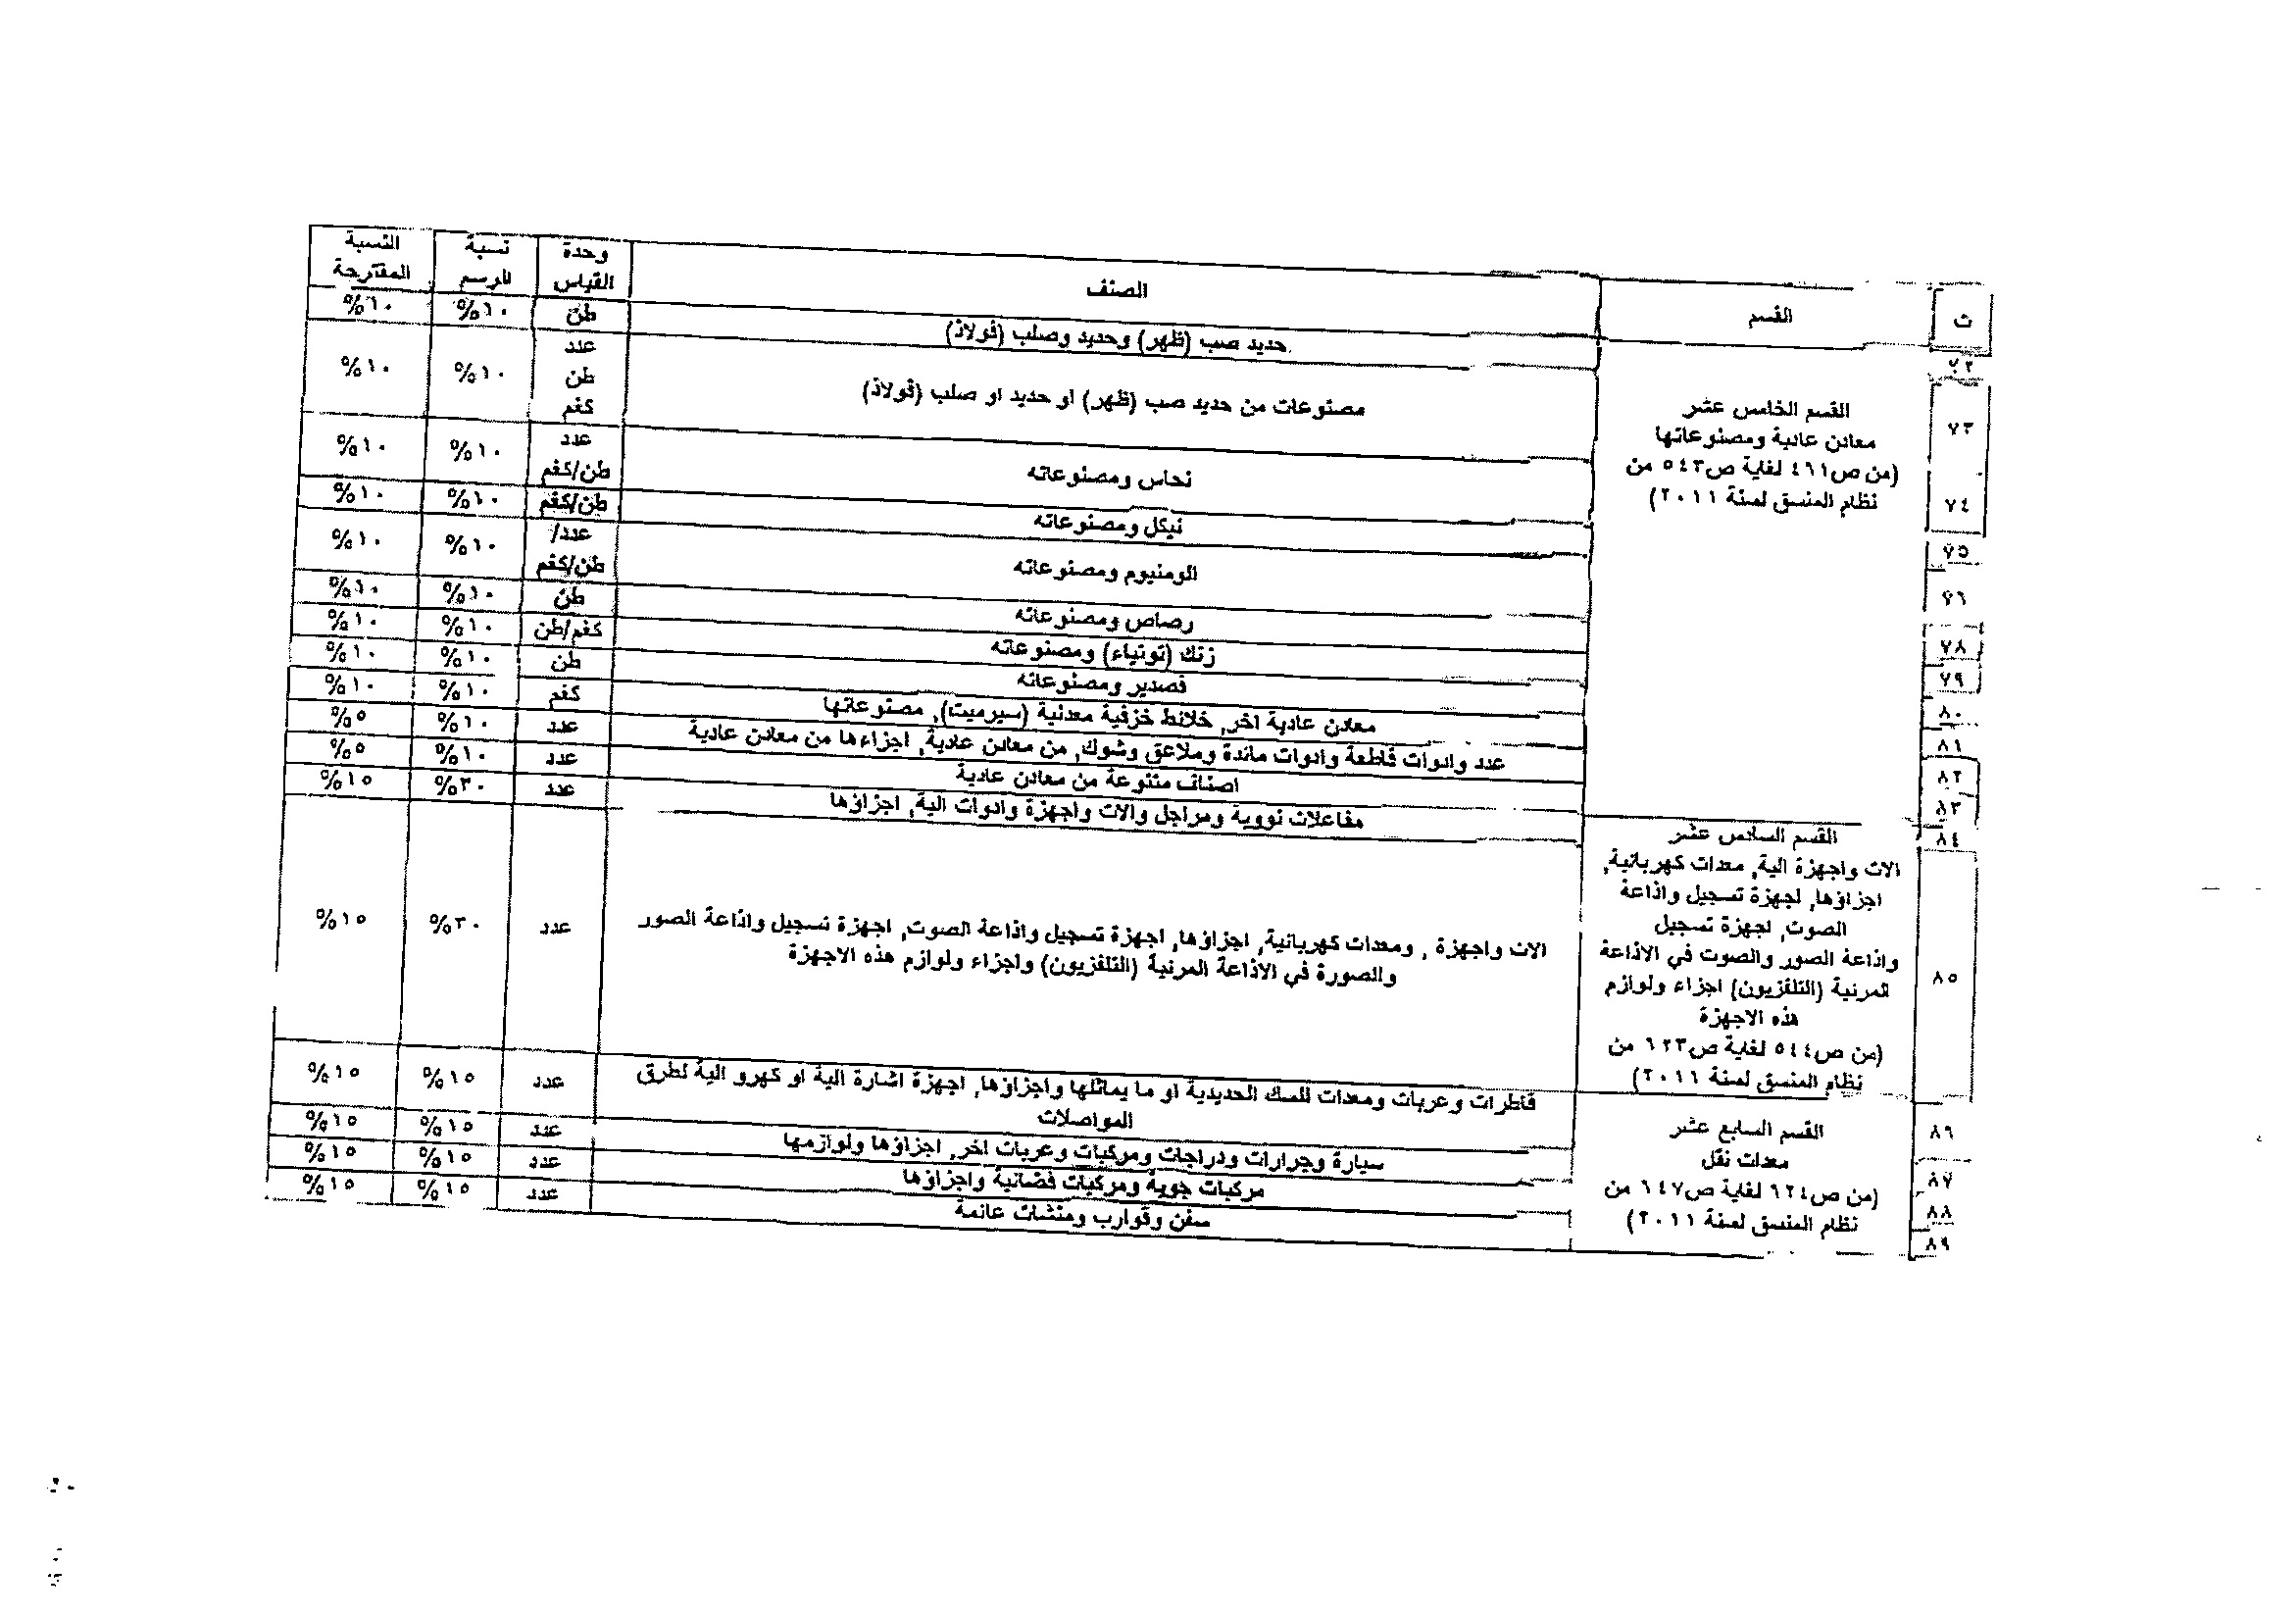 ت القسم الصنف وحدة القياس نسبة الرسم النسبة المقترحة
٧٢ حديد صب (ظهر) وحديد وصلب (فولاذ) طن ١٠% ١٠%
القسم الخامس عشر
معادن عادية ومصنوعاتها
(من ص٤٦١ لغاية ص٥٤٣ من
نظام المنسق لسنة ٢٠١١)
٧٣ مصنوعات من حديد صب (ظهر) او حديد او صلب (فولاذ) عدد طن كغم ١٠% ١٠%
٧٤ نحاس ومصنوعاته عدد طن/كغم ١٠% ١٠%
٧٥ نيكل ومصنوعاته طن/كغم ١٠% ١٠%
٧٦ الومنيوم ومصنوعاته عدد/ طن/كغم ١٠% ١٠%
٧٨ رصاص ومصنوعاته طن ١٠% ١٠%
٧٩ زنك (توتياء) ومصنوعاته كغم/طن ١٠% ١٠%
٨٠ قصدير ومصنوعاته طن ١٠% ١٠%
٨١ معادن عادية اخر, خلائط خزفية معدنية (سيرميت), مصنوعاتها كغم ١٠% ١٠%
٨٢ عدد وادوات قاطعة وادوات مائدة وملاعق وشوك, من معادن عادية, اجزاءها من معادن عادية عدد ١٠% ٥%
٨٣ اصناف متنوعة من معادن عادية عدد ١٠% ٥%
٨٤ مفاعلات نووية ومراجل والات واجهزة وادوات الية, اجزاؤها عدد ٣٠% ١٥%
القسم السادس عشر
الات واجهزة الية, معدات كهربائية,
اجزاؤها, اجهزة تسجيل واذاعة
الصوت, اجهزة تسجيل
واذاعة الصور والصوت في الاذاعة
المرئية (التلفزيون) اجزاء ولوازم
هذه الاجهزة
(من ص٥٤٤ لغاية ص٦٢٣ من
نظام المنسق لسنة ٢٠١١)
٨٥ الات واجهزة , ومعدات كهربائية, اجزاؤها, اجهزة تسجيل واذاعة الصوت, اجهزة تسجيل واذاعة الصور عدد ٣٠% ١٥%
والصورة في الاذاعة المرئية (التلفزيون) واجزاء ولوازم هذه الاجهزة
القسم السابع عشر
معدات نقل
(من ص٦٢٤ لغاية ص٦٤٧ من
نظام المنسق لسنة ٢٠١١)
٨٦ قاطرات وعربات ومعدات للسكك الحديدية او ما يماثلها واجزاؤها, اجهزة اشارة الية او كهرو الية لطرق عدد ١٥% ١٥%
المواصلات
٨٧ سيارة وجرارات ودراجات ومركبات وعربات اخر, اجزاؤها ولوازمها عدد ١٥% ١٥%
٨٨ مركبات جوية ومركبات فضائية واجزاؤها عدد ١٥% ١٥%
٨٩ سفن وقوارب ومنشات عائمة عدد ١٥% ١٥%